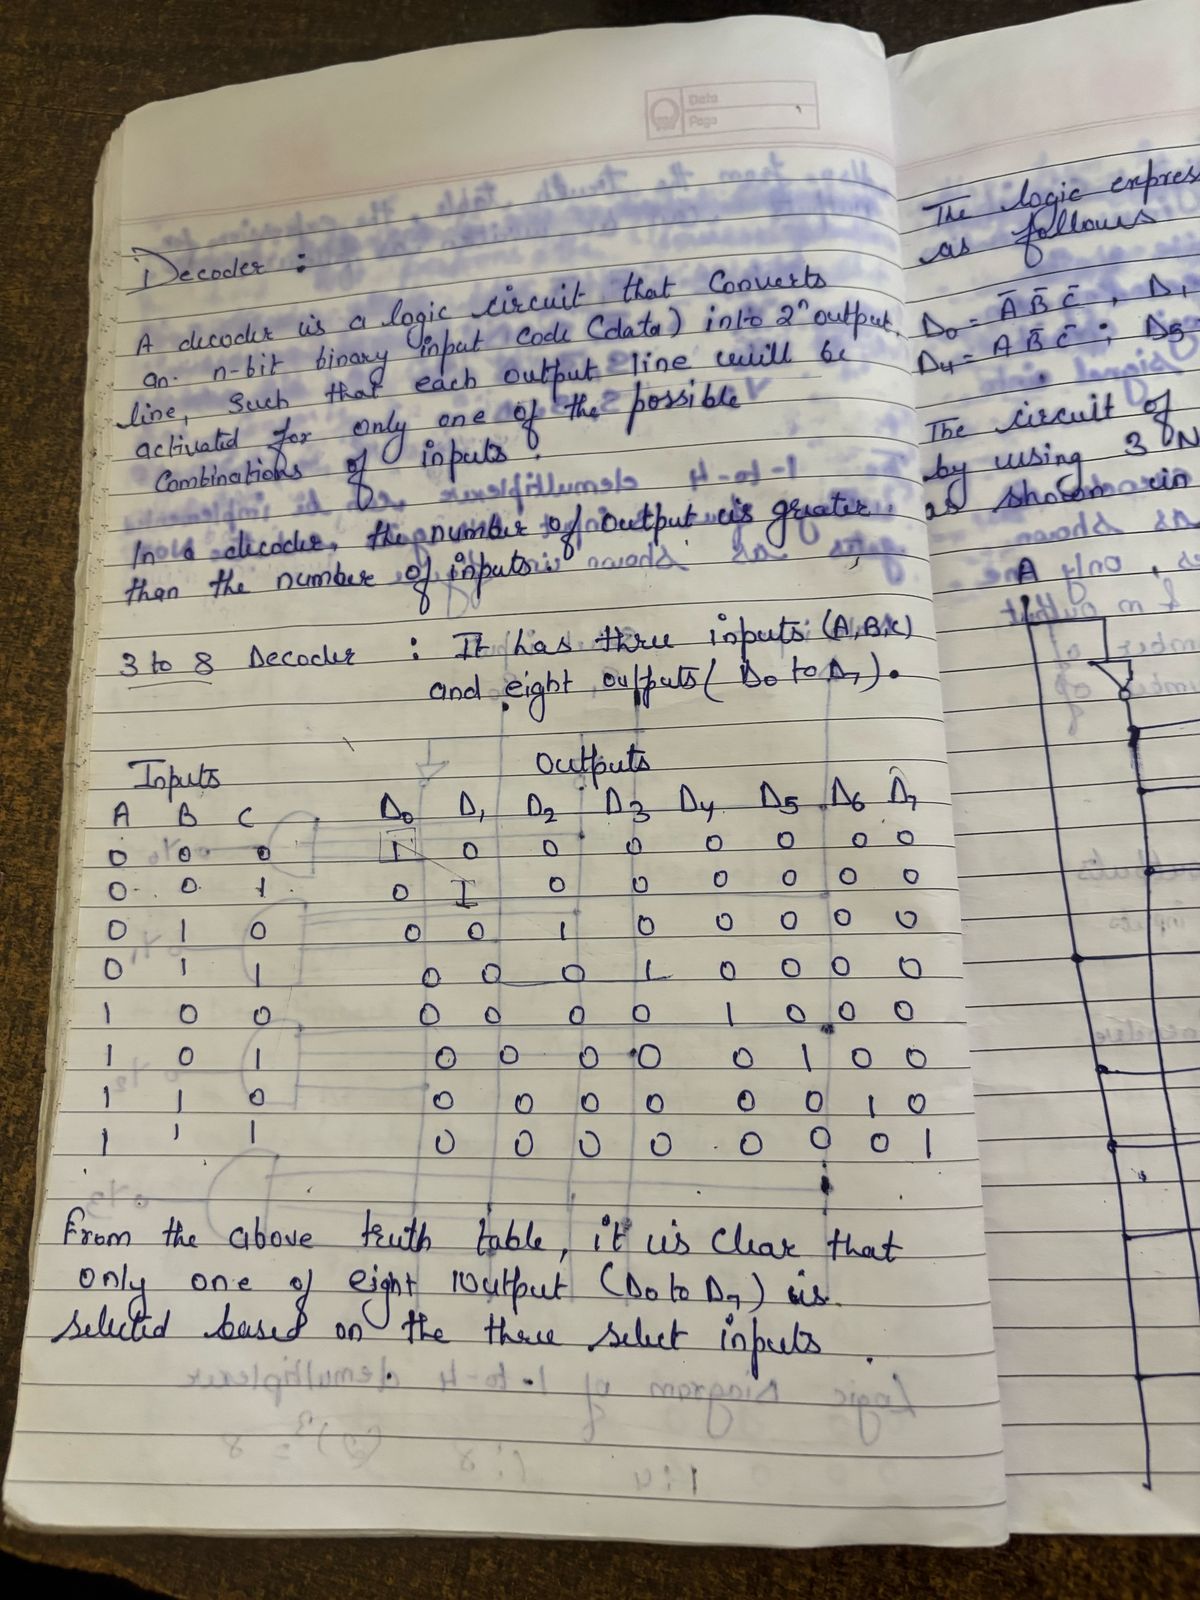 Date
Page
Decoder :
A decoder is a logic circuit that Converts
an n-bit binary input code (data) into 2ⁿ output
line, Such that each output line will be
activated for only one of the possible
Combinations of inputs.
In a decoder, the number of output is greater
than the number of inputs.
3 to 8 Decoder : It has three inputs (A,B,C)
and eight outputs ( D0 to D7 ).
Inputs Outputs
A B C D0 D1 D2 D3 D4 D5 D6 D7
0 0 0 1 0 0 0 0 0 0 0
0 0 1 0 1 0 0 0 0 0 0
0 1 0 0 0 1 0 0 0 0 0
0 1 1 0 0 0 1 0 0 0 0
1 0 0 0 0 0 0 1 0 0 0
1 0 1 0 0 0 0 0 1 0 0
1 1 0 0 0 0 0 0 0 1 0
1 1 1 0 0 0 0 0 0 0 1
From the above truth table, it is clear that
only one of eight output (D0 to D7) is
selected based on the three select inputs.
The logic expres
as follows
D0 = Ā B̄ C̄ , D1
D4 = A B̄ C̄ ; D5 =
The circuit of
by using 3 N
as shown in
A